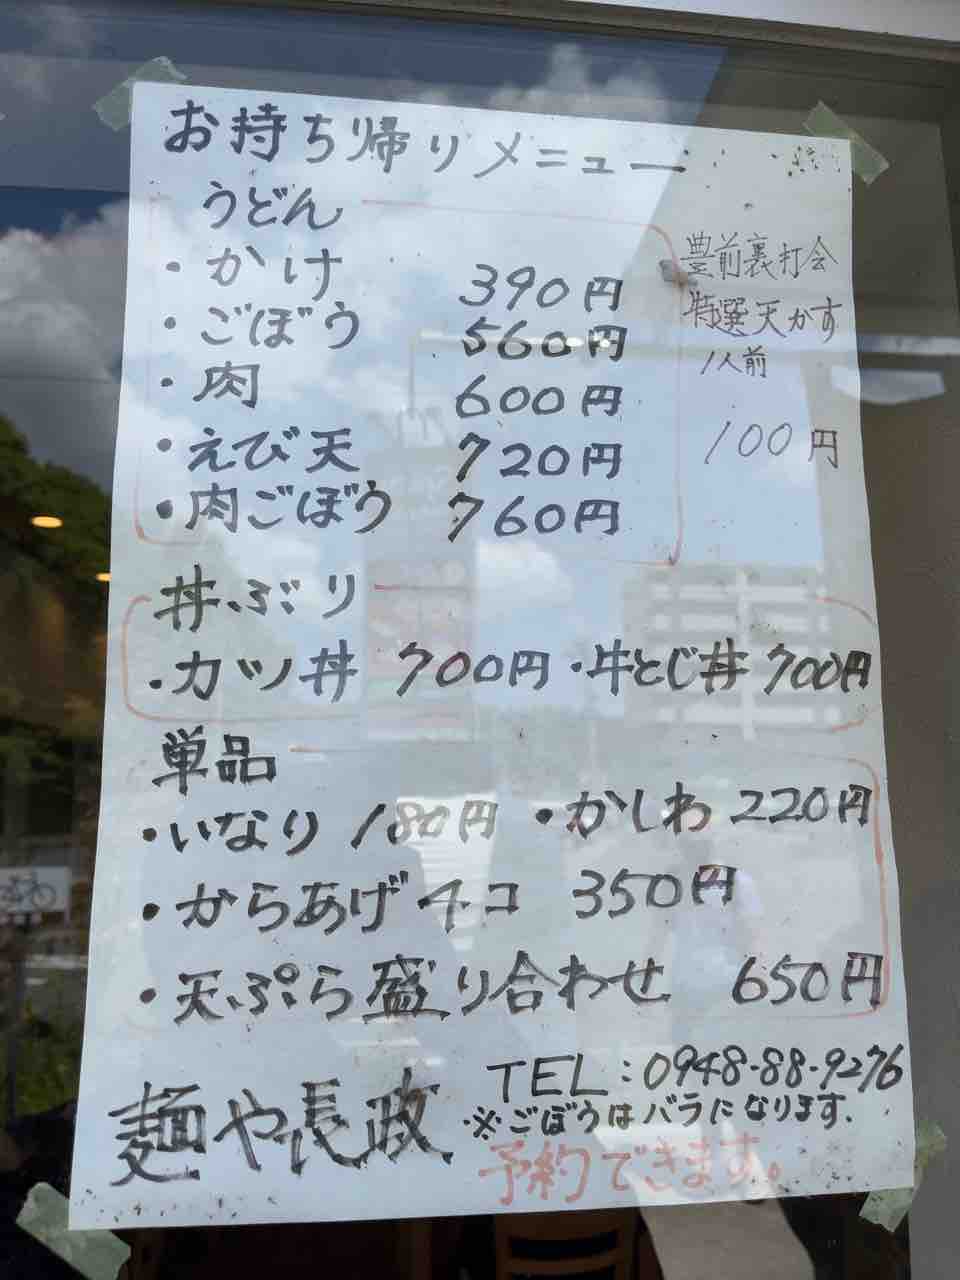 お持ち帰りメニュー
うどん
・かけ 390円
・ごぼう 560円
・肉 600円
・えび天 720円
・肉ごぼう 760円
豊前裏打会
特選天かす
1人前
100円
丼ぶり
・カツ丼 700円 ・牛とじ丼 700円
単品
・いなり 180円 ・かしわ 220円
・からあげ4コ 350円
・天ぷら盛り合わせ 650円
麺や長政
TEL:0948-88-9276
※ごぼうはバラになります.
予約できます。